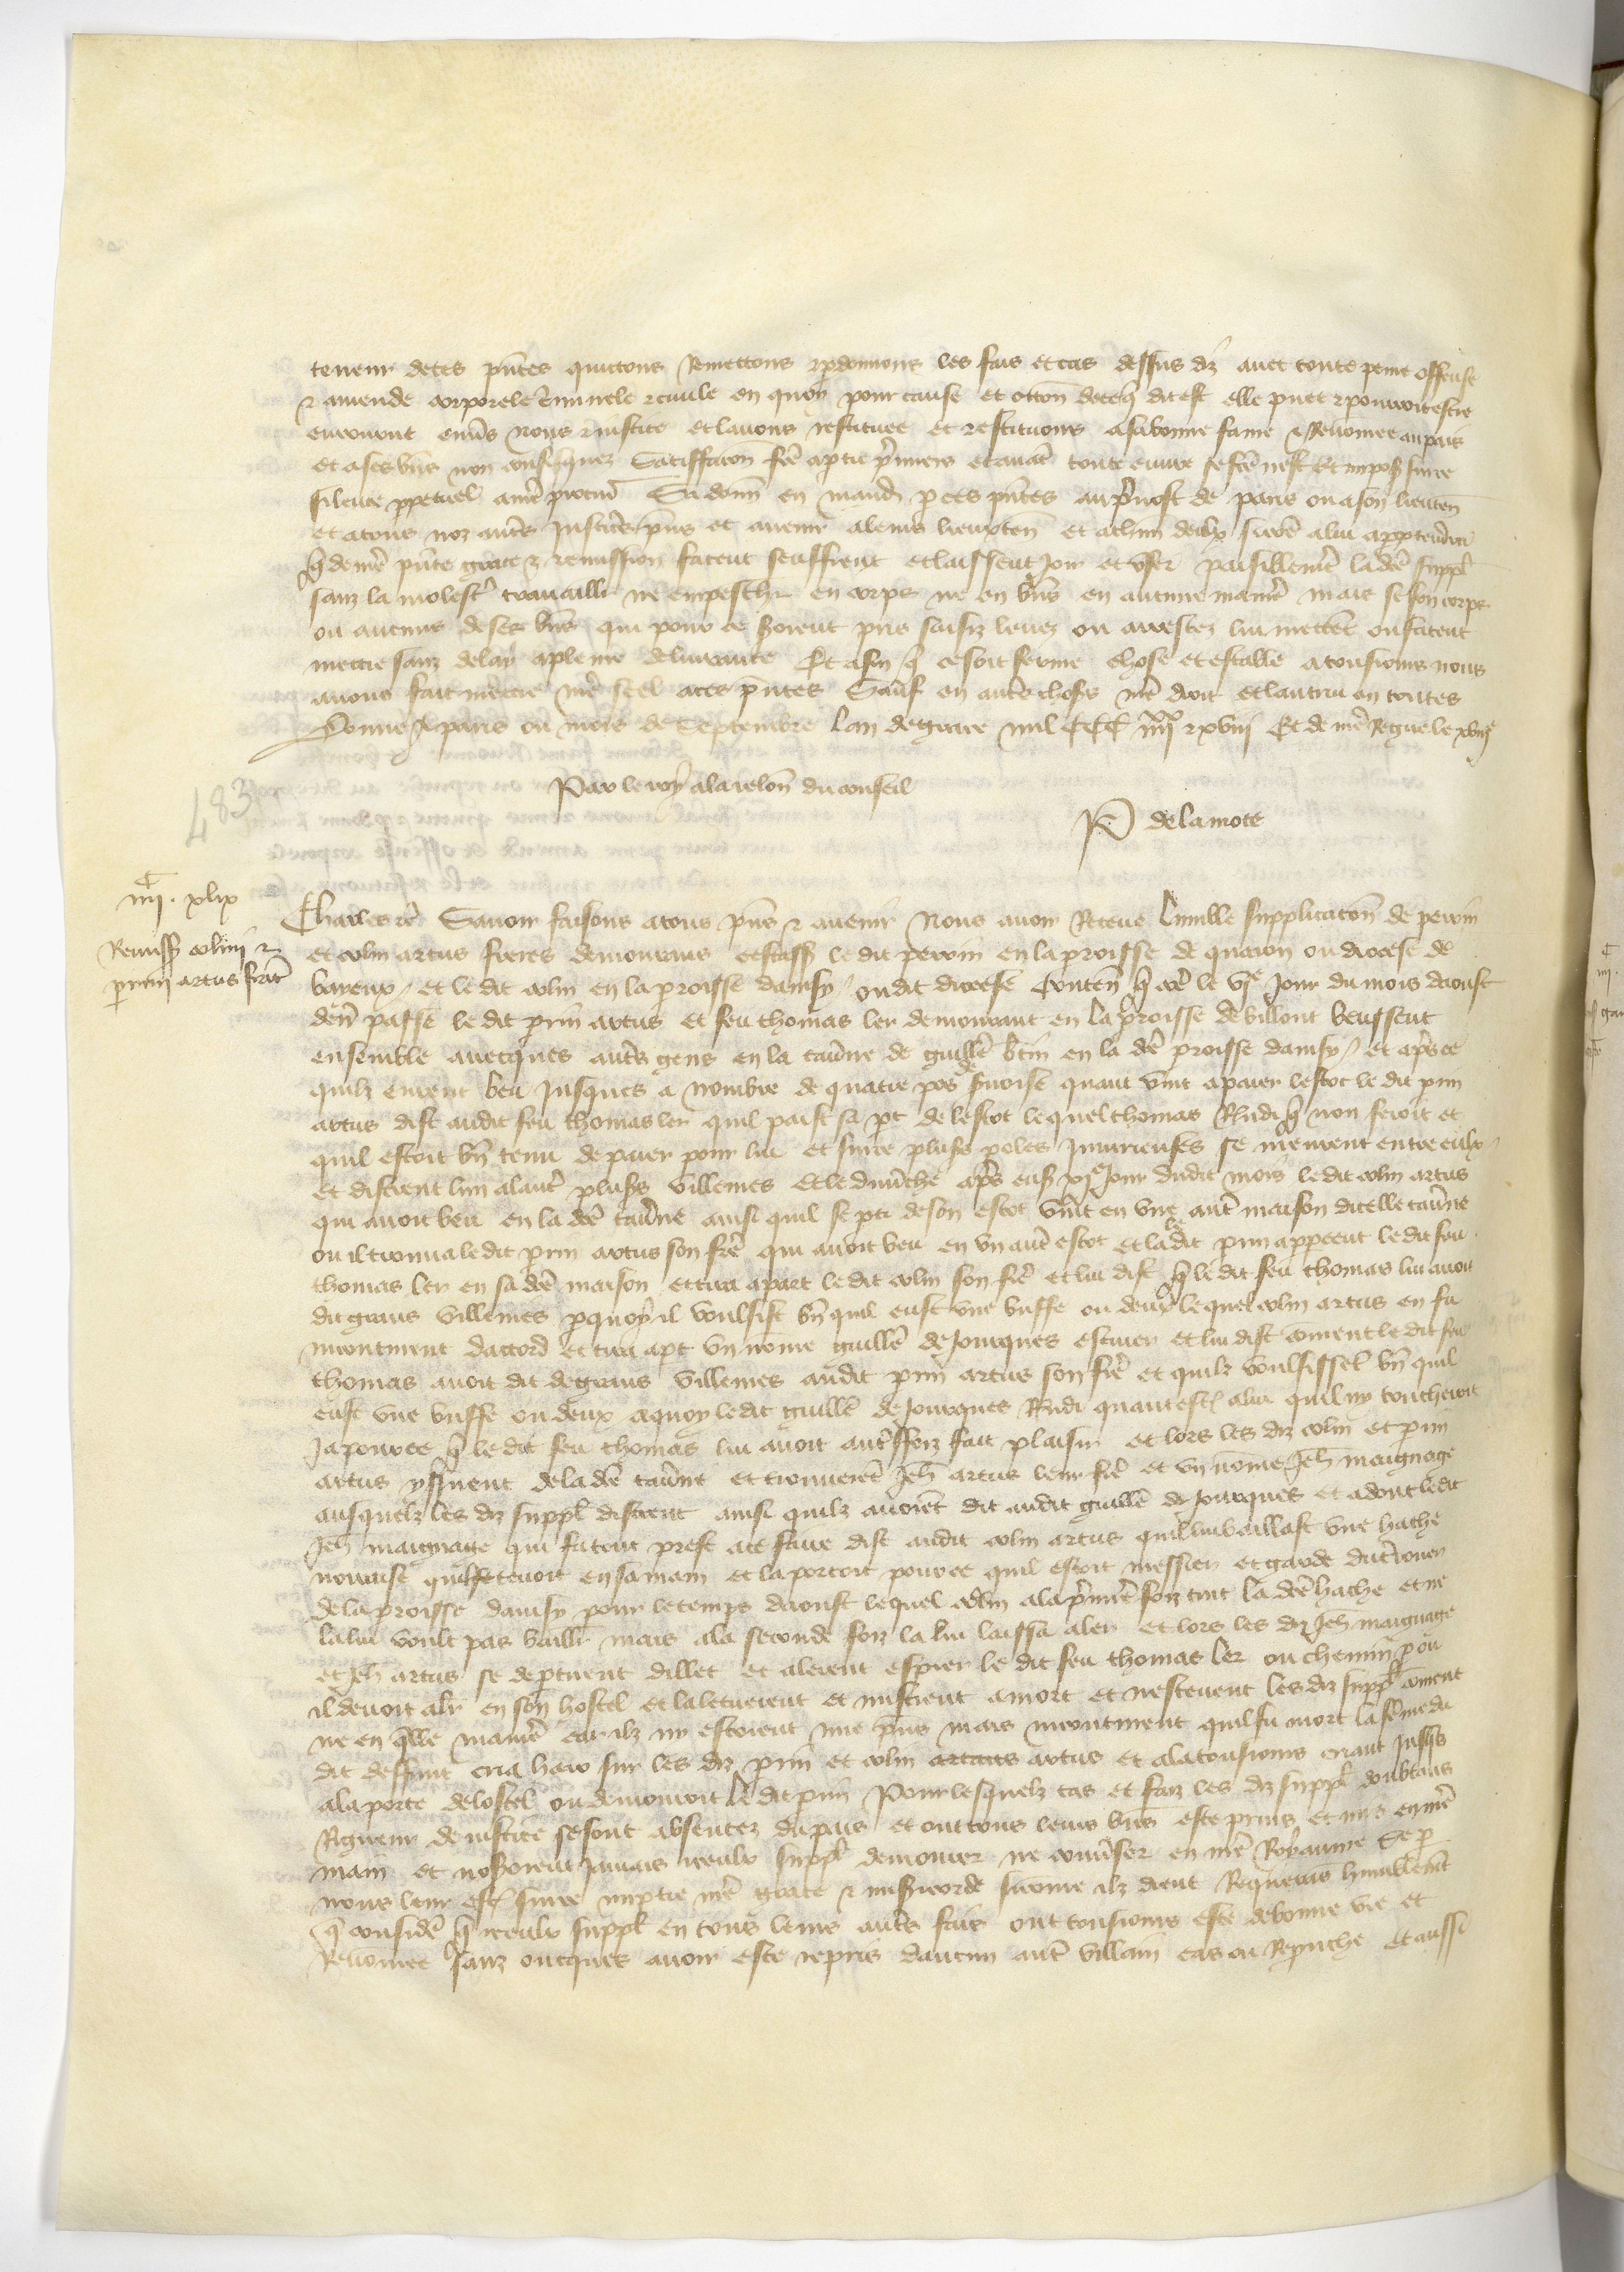 teneur de ces pñtes quictons Remectons ⁊ pdonnons les fais et cas dessus diz avec toute peine offense
⁊ amende corporele cminele ⁊ civile en quoy pour cause et occõn de ce q̃ dit est elle puet ⁊ pourroit estre
encourue enũs nous ⁊ justice et lavons restituee et restituons a sa bonne fame ⁊ Renõmee au pais
et a ses biẽs non confisquez Satisffacõn fcẽ a ptie p̃mierẽ et avãt toute euvre se fcẽ nest Et imposõs sur ce
silence ppetuel a nrẽ procureur Si donn en mand p ces pñtes au p̃vost de paris ou a son lieuten
et a tous noz autes Justicers pñs et avenir a leurs lieuxten et a chũn deulx si cõe a lui apptendra
q̃ de nrẽ pñte grace ⁊ remission facent seuffrent et laissent Joir et user paisiblemẽt la dcẽ suppl
sanz la molester travaillr ne empeschr en corps ne en biẽs en aucune manie mais se son corps
ou aucuns de ses biẽs qui pour ce soient pris saisiz levez ou arrestez lui mettẽt ou facent
mectre sanz delay a pleine delivrance Et afin q̃ ce soit ferme chose et estable a tousiours nous
avons fait mectre nrẽ seel a ces pñtes Sauf en autes choses nrẽ droit et lautrui en toutes
Donne A paris ou mois de Septembre lan de grace mil CCC iiiixx ⁊ xviii Et de nrẽ Regne le xviiie
Par le roy a la relõn du conseil
P de la mote
483
iiiiC xlix
Remiss colini ⁊
perrini artus frat̃
Charles rẽ Savoir faisons a tous pñs ⁊ avenir Nous avoir Receue lumble supplicacõn de perrin
et colin artus freres demourans cestass le dit perrin en la proisse de quaron ou diocese de
baieux / et le dit colin en la proisse damsy / ou dit diocese Contenñ q̃ cõe le vie Jour du mois daoust
denr passe le dit prin artus et feu thomas ler demourant en la proisse de villont beussent
ensemble avecques autes gens en la tavne de guille btin en la dcẽ proisse damsy / et ap̃s ce
quilz eurent beu Jusques a nombre de quatre pos de cervoise quant vint a paier lescot le dit prin
artus dist audit feu thomas ler quil paiast sa pt de lescot le quel thomas Rndi q̃ non feroit et
quil estoit biẽ tenu de paier pour lui et sur ce pluss poles Injurieuses se meurent entre eulx /
et distrent lun a lautre pluss villenies Et le dimẽche ap̃s ens xie Jour dudit mois ledit colin artus
qui avoit beu en la dcẽ tavne ainsi quil se pti de son escot vint en une autẽ maison dicelle tavne
ou il trouva ledit prin artus son frẽ qui avoit beu en un autẽ escot et la le dit prin appceut le dit feu
thomas ler en sa dcẽ maison et tira a part le dit colin son frẽ et lui dist q̃ le dit feu thomas lui avoit
dit grans villenies pquoy il voulsist biẽ quil eust une buffe ou deux le quel colin artus en fu
incontinent dacord et tira apt un nõme guille de Jourques escuier et lui dist cõment le dit feu
thomas avoit dit de grans villenies audit prin artus son frẽ et quilz voulsissẽt biẽ quil
eust une buffe ou deux a quoy le dit guille de Jourques Rndi quant est a lui quil ny toucheroit
Ja pour ce q̃ le dit feu thomas lui avoit autesfoiz fait plaisir et lors les diz colin et prin
artus yssirent de la dcẽ tavne et trouverẽt Jeh artus leur frẽ et un nõme Jeh maignage
ausquelz les diz suppl distrent ainsi quilz avoiẽt dit audit guille de Jourques et adont ledit
Jeh maignage qui fu tout prest a ce faire dist audit colin artus quil lui baillast une hache
norroise quil tenoit en sa main et la portoit pour ce quil estoit messier et garde du terrouer
de la proisse damsy pour le temps daoust le quel colin a la p̃miere foiz tint la dcẽ hache et ne
la lui voult pas baillr mais a la seconde foiz la lui laissa aler et lors les diz Jeh maignage
et Jeh artus se deptirent dillec et alerent espier le dit feu thomas ler ou chemin p ou
il devoit alr en son hostel et la le tuerent et mistrent a mort et ne scevent les diz suppl cõment
ne en q̃lle manie car ilz ny estoient mie pñs mais incontinent quil fu mort la fẽme du
dit deffunt cria haro sur les diz prin et colin artus et a la tousiours criant Jusq̃s
a la porte de lostel ou demouroit le dit prin Pour lesquelz cas et faiz les diz suppl doubtans
Rigueur de justice se sont absentez du pais et ont tous leurs biẽs este prins et mis en nrẽ
main et noseroient Jamais iceulx suppl demourer ne conṽser en nrẽ Royaume Se p
nous leur est sur ce impptie nrẽ grace ⁊ misicorde si cõme ilz dient Requerans humblemẽt
q̃ considẽ q̃ iceulx suppl en tous leurs autes fais ont tousiours este de bonne vie et
Renõmee sanz oncques avoir este repris daucun autẽ villain cas ou Reprouche et aussi